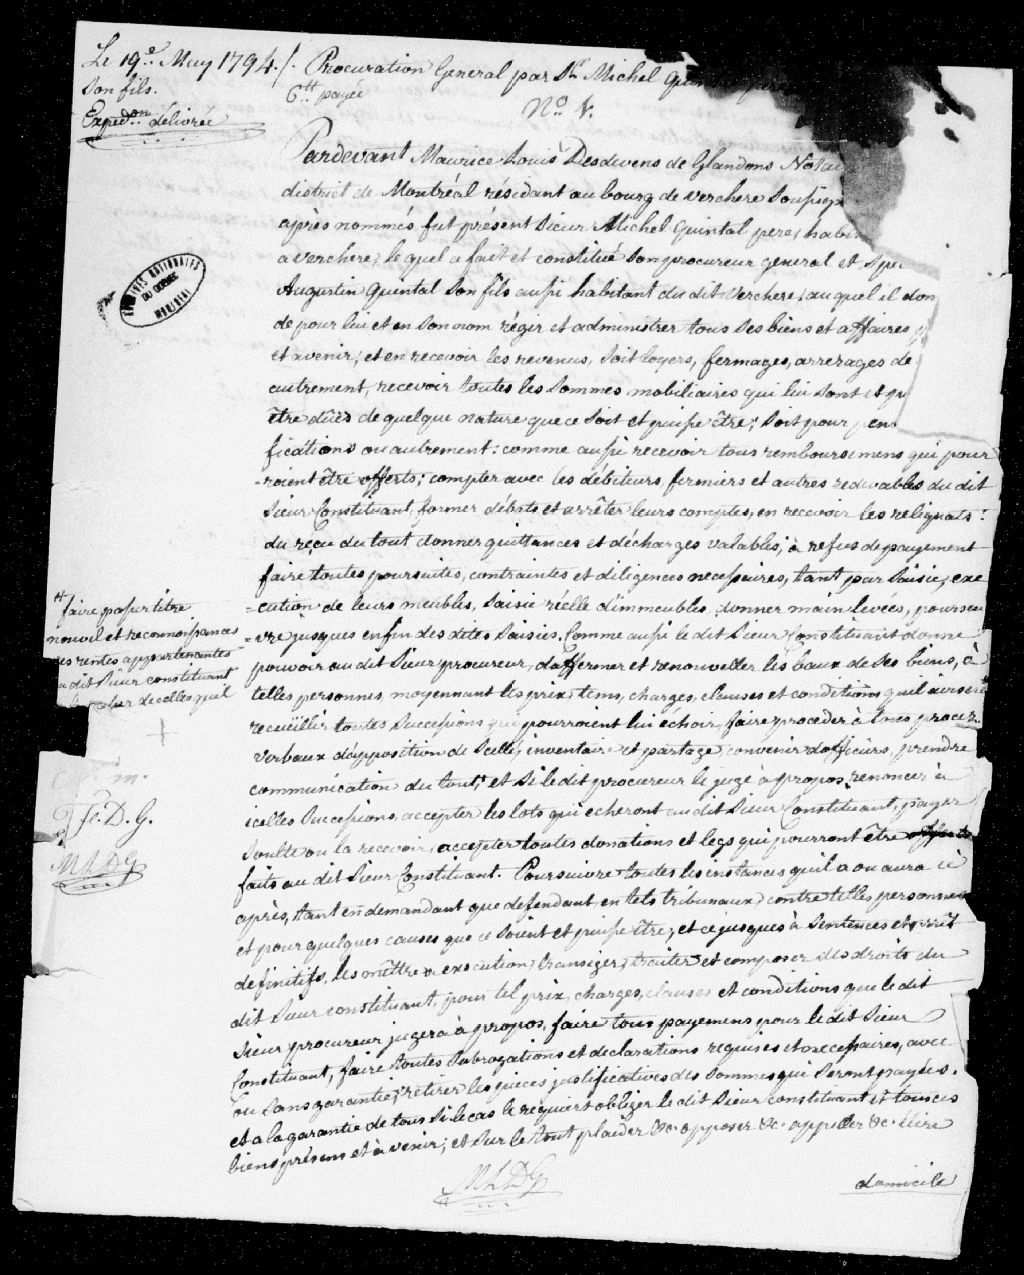 Le 19e. May 1794./. Procuration General par Sr. Michel Quin
Son fils.
6tt payée
No. 1.
Expedon. délivrée
Pardevant Maurice Louis Desdevens de Glandons Notai
district de Montréal résidant au bourg de verchere Soussign
après nommés fut présent Sieur Michel Quintal pere, habi
a verchere, le quel a fait et constitué Son procureur general et Spe
Augustin Quintal Son fils aussi habitant du dit verchere, auquel il don
de pour lui et en Son nom régir et administrer tous Ses biens et affaires
et avenir, et en recevoir les revenus, Soit loyers, fermages, arrerages de
autrement, recevoir toutes les Sommes mobiliaires qui lui Sont et p
être dûes de quelque nature que ce Soit et puisse être; Soit pour
fications ou autrement: comme aussi recevoir tous remboursemens qui pour
-roient être offerts; compter avec les débiteurs, fermiers et autres redevables du dit
Sieur Constituant, former débats et arrêter leurs comptes, en recevoir les reliquats:
du reçu du tout donner quittances et décharges valables, à refus de payement
faire toutes poursuites, contraintes et diligences necessaires, tant par Saisie, exe
=cution de leurs meubles, Saisie réelle d'immeubles, donner main levées, poursui
=vre jusques enfin des dites Saisies. Comme aussi le dit Sieur Constituant donne
pouvoir au dit Sieur procureur, d'affermer et renouveller les baux de Ses biens, à
telles personnes, moyennant les prix, tems, charges, clauses et conditions qu'il avisera tt
recueïller toutes Successions qui pourroient lui échoir, faire procéder à tous procez
verbaux d'apposition de Scellé, inventaire et partage, convenir d'officiers, prendre
communication du tout, et Si le dit procureur le juge à propos, renoncer à
icelles Successions, accepter les lots qui écheront au dit Sieur Constituant, payer
Soulte ou la recevoir, accepter toutes donations et legs qui pourront être
faits au dit Sieur Constituant. Poursuivre toutes les instances qu'il a ou aura ci
après, tant en demandant que defendant, en tels tribunaux, contre telles personnes
et pour quelques causes que ce Soient et puisse être, et ce jusques à Sentences et arrêt
definitifs, les mêttre a execution, transiger, traiter et composer des droits du
dit Sieur constituant, pour tel prix, charges, clauses et conditions que le dit
Sieur procureur jugera à propos, faire tous payemens pour le dit Sieur
Constituant, faire toutes Subrogations et declarations requises et necessaires, avec
ou Sans garantie, retirer les pieces justificatives des Sommes qui Seront payées.
et a la garantie de tous Si le cas le requiert obliger le dit Sieur constituant et tous ces
biens présens et à venir; et Sur le tout plaider &c. opposer &c. appeller &c. élire
MLDG
domicile
tt faire passer titre
nouvel et reconnoissances
des rentes appartenantes
u dit Sieur constituant
d'icelles, qu'il
m.
F. D. G.
MLDG
ARCHIVES NATIONALES
DU QUEBEC
MONTREAL